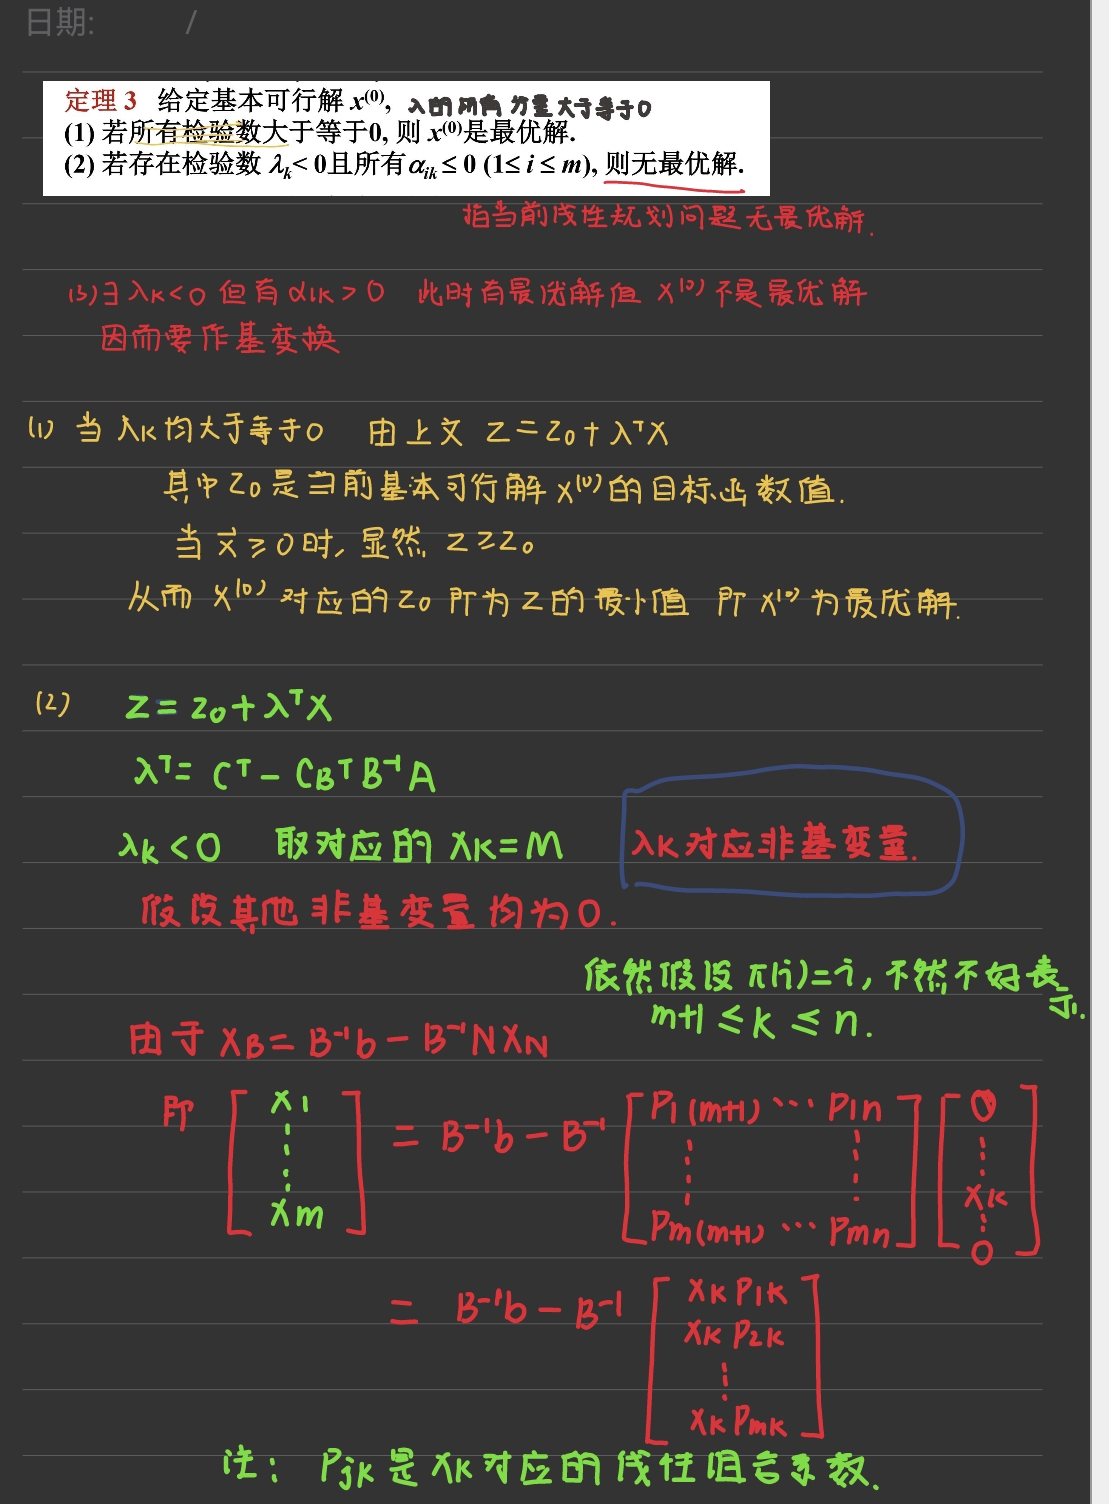 日期: /
定理 3 给定基本可行解 x⁽⁰⁾, λ的所有分量大于等于0
(1) 若所有检验数大于等于0, 则 x⁽⁰⁾是最优解.
(2) 若存在检验数 λₖ< 0且所有αᵢₖ ≤ 0 (1≤ i ≤ m), 则无最优解.
指当前线性规划问题无最优解.
(3) ∃ λk<0 但有 αik>0 此时有最优解但 X⁽⁰⁾不是最优解
因而要作基变换
(1) 当 λk 均大于等于0 由上文 Z=Z₀+λᵀX
其中 Z₀ 是当前基本可行解 X⁽⁰⁾的目标函数值.
当 x⃗≥0时, 显然 Z≥Z₀
从而 X⁽⁰⁾ 对应的 Z₀ 即为 Z的最小值 即 X⁽⁰⁾为最优解.
(2) Z=Z₀+λᵀX
λᵀ= Cᵀ- C_Bᵀ B⁻¹A
λk<0 取对应的 Xk=M λk对应非基变量.
假设其他非基变量均为0.
依然假设 π(i)=i, 不然不好表示.
m+1 ≤ k ≤ n.
由于 X_B= B⁻¹b - B⁻¹N X_N
即 [X1 ⋮ Xm] = B⁻¹b - B⁻¹ [P1(m+1) ⋯ P1n ⋮ ⋮ Pm(m+1) ⋯ Pmn] [0 ⋮ Xk ⋮ 0]
= B⁻¹b - B⁻¹ [Xk P1k Xk P2k ⋮ Xk Pmk]
注: Pjk 是 Xk 对应的线性组合系数.